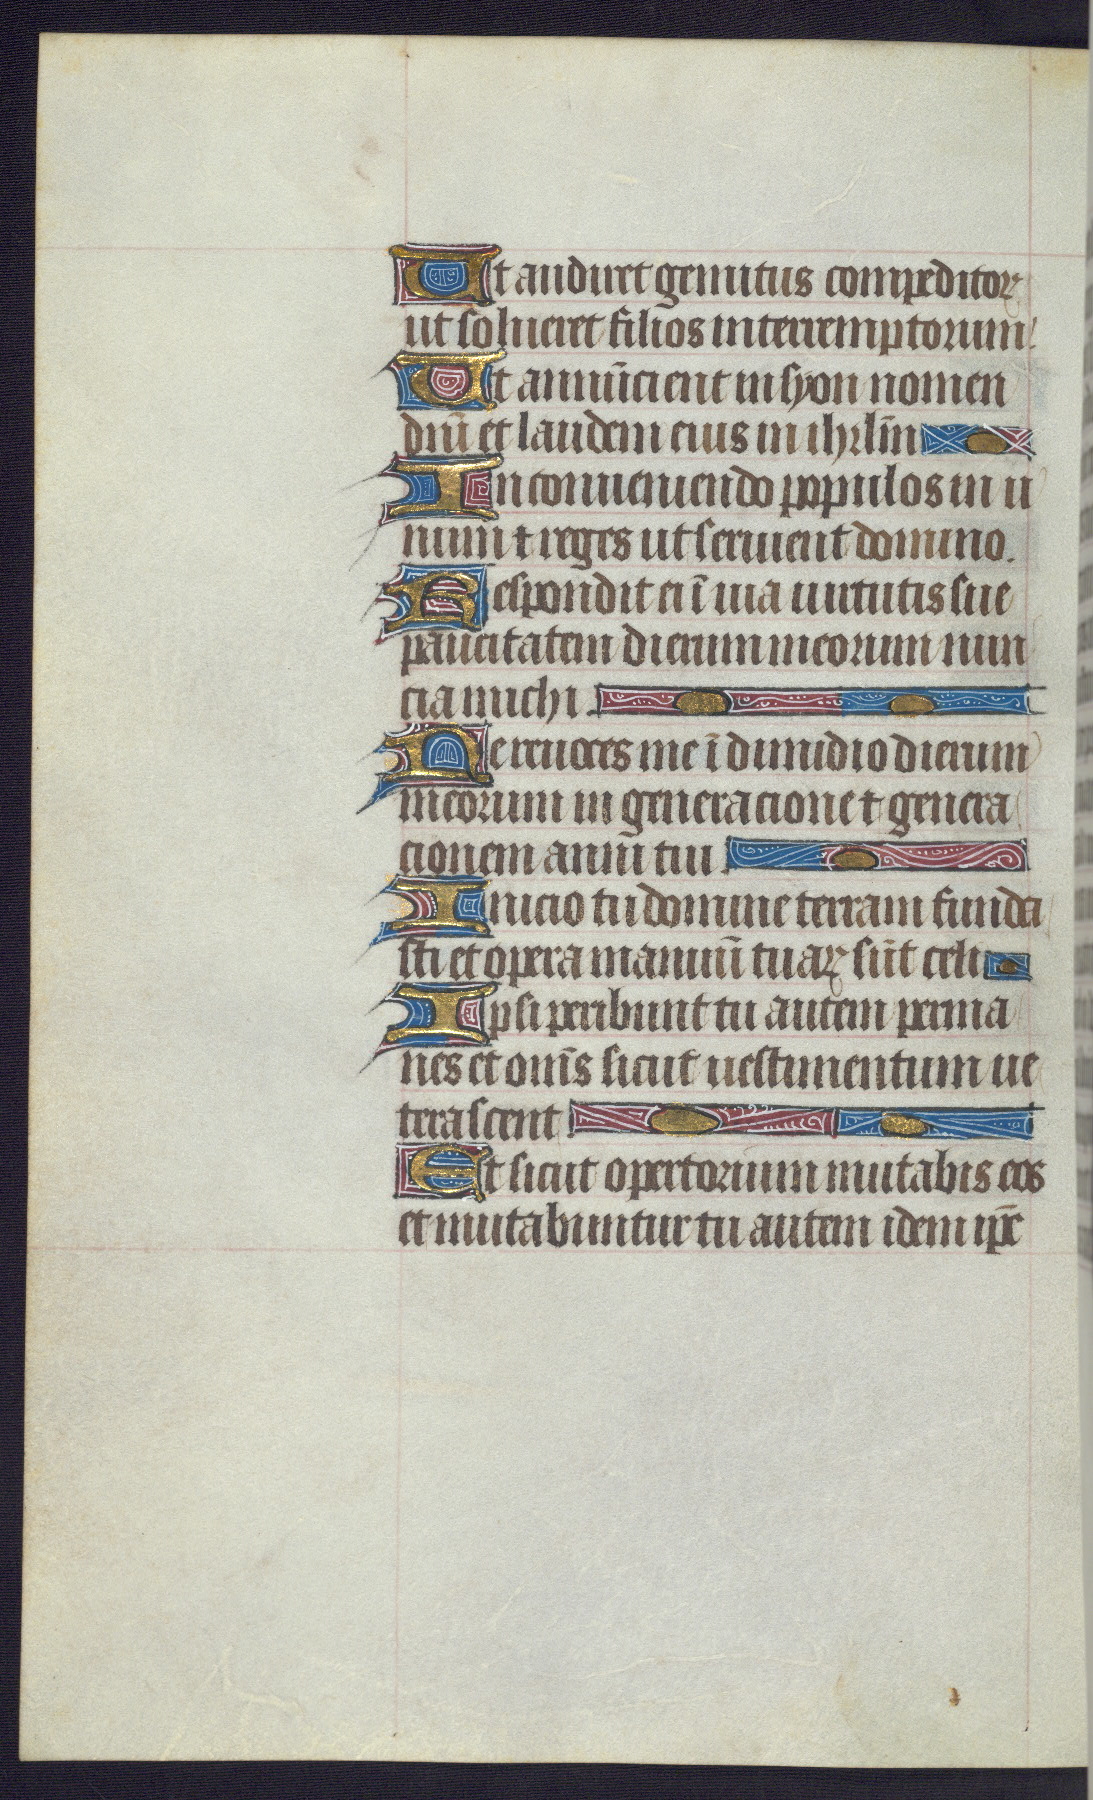 Ut audiret gemitus compeditoꝝ
ut solueret filios interremptorum.
Ut annūcient in syon nomen
dnī et laudem eius in ihrlm̄
In conueniendo populos in u
num ⁊ reges ut seruient domino.
Respondit ei ī uia uirtutis sue
paucitatem dierum meorum nun
cia michi.
Ne reuoces me ī dimidio dierum
meorum in generacione ⁊ genera
cionem anni tui.
Inicio tu domine terram funda
sti et opera manuū tuaꝝ sūt celi
Ipsi peribunt tu autem perma
nes et om̄s sicut uestimentum ue
terascent.
Et sicut opertorium mutabis eos
et mutabuntur tu autem idem ip̄e